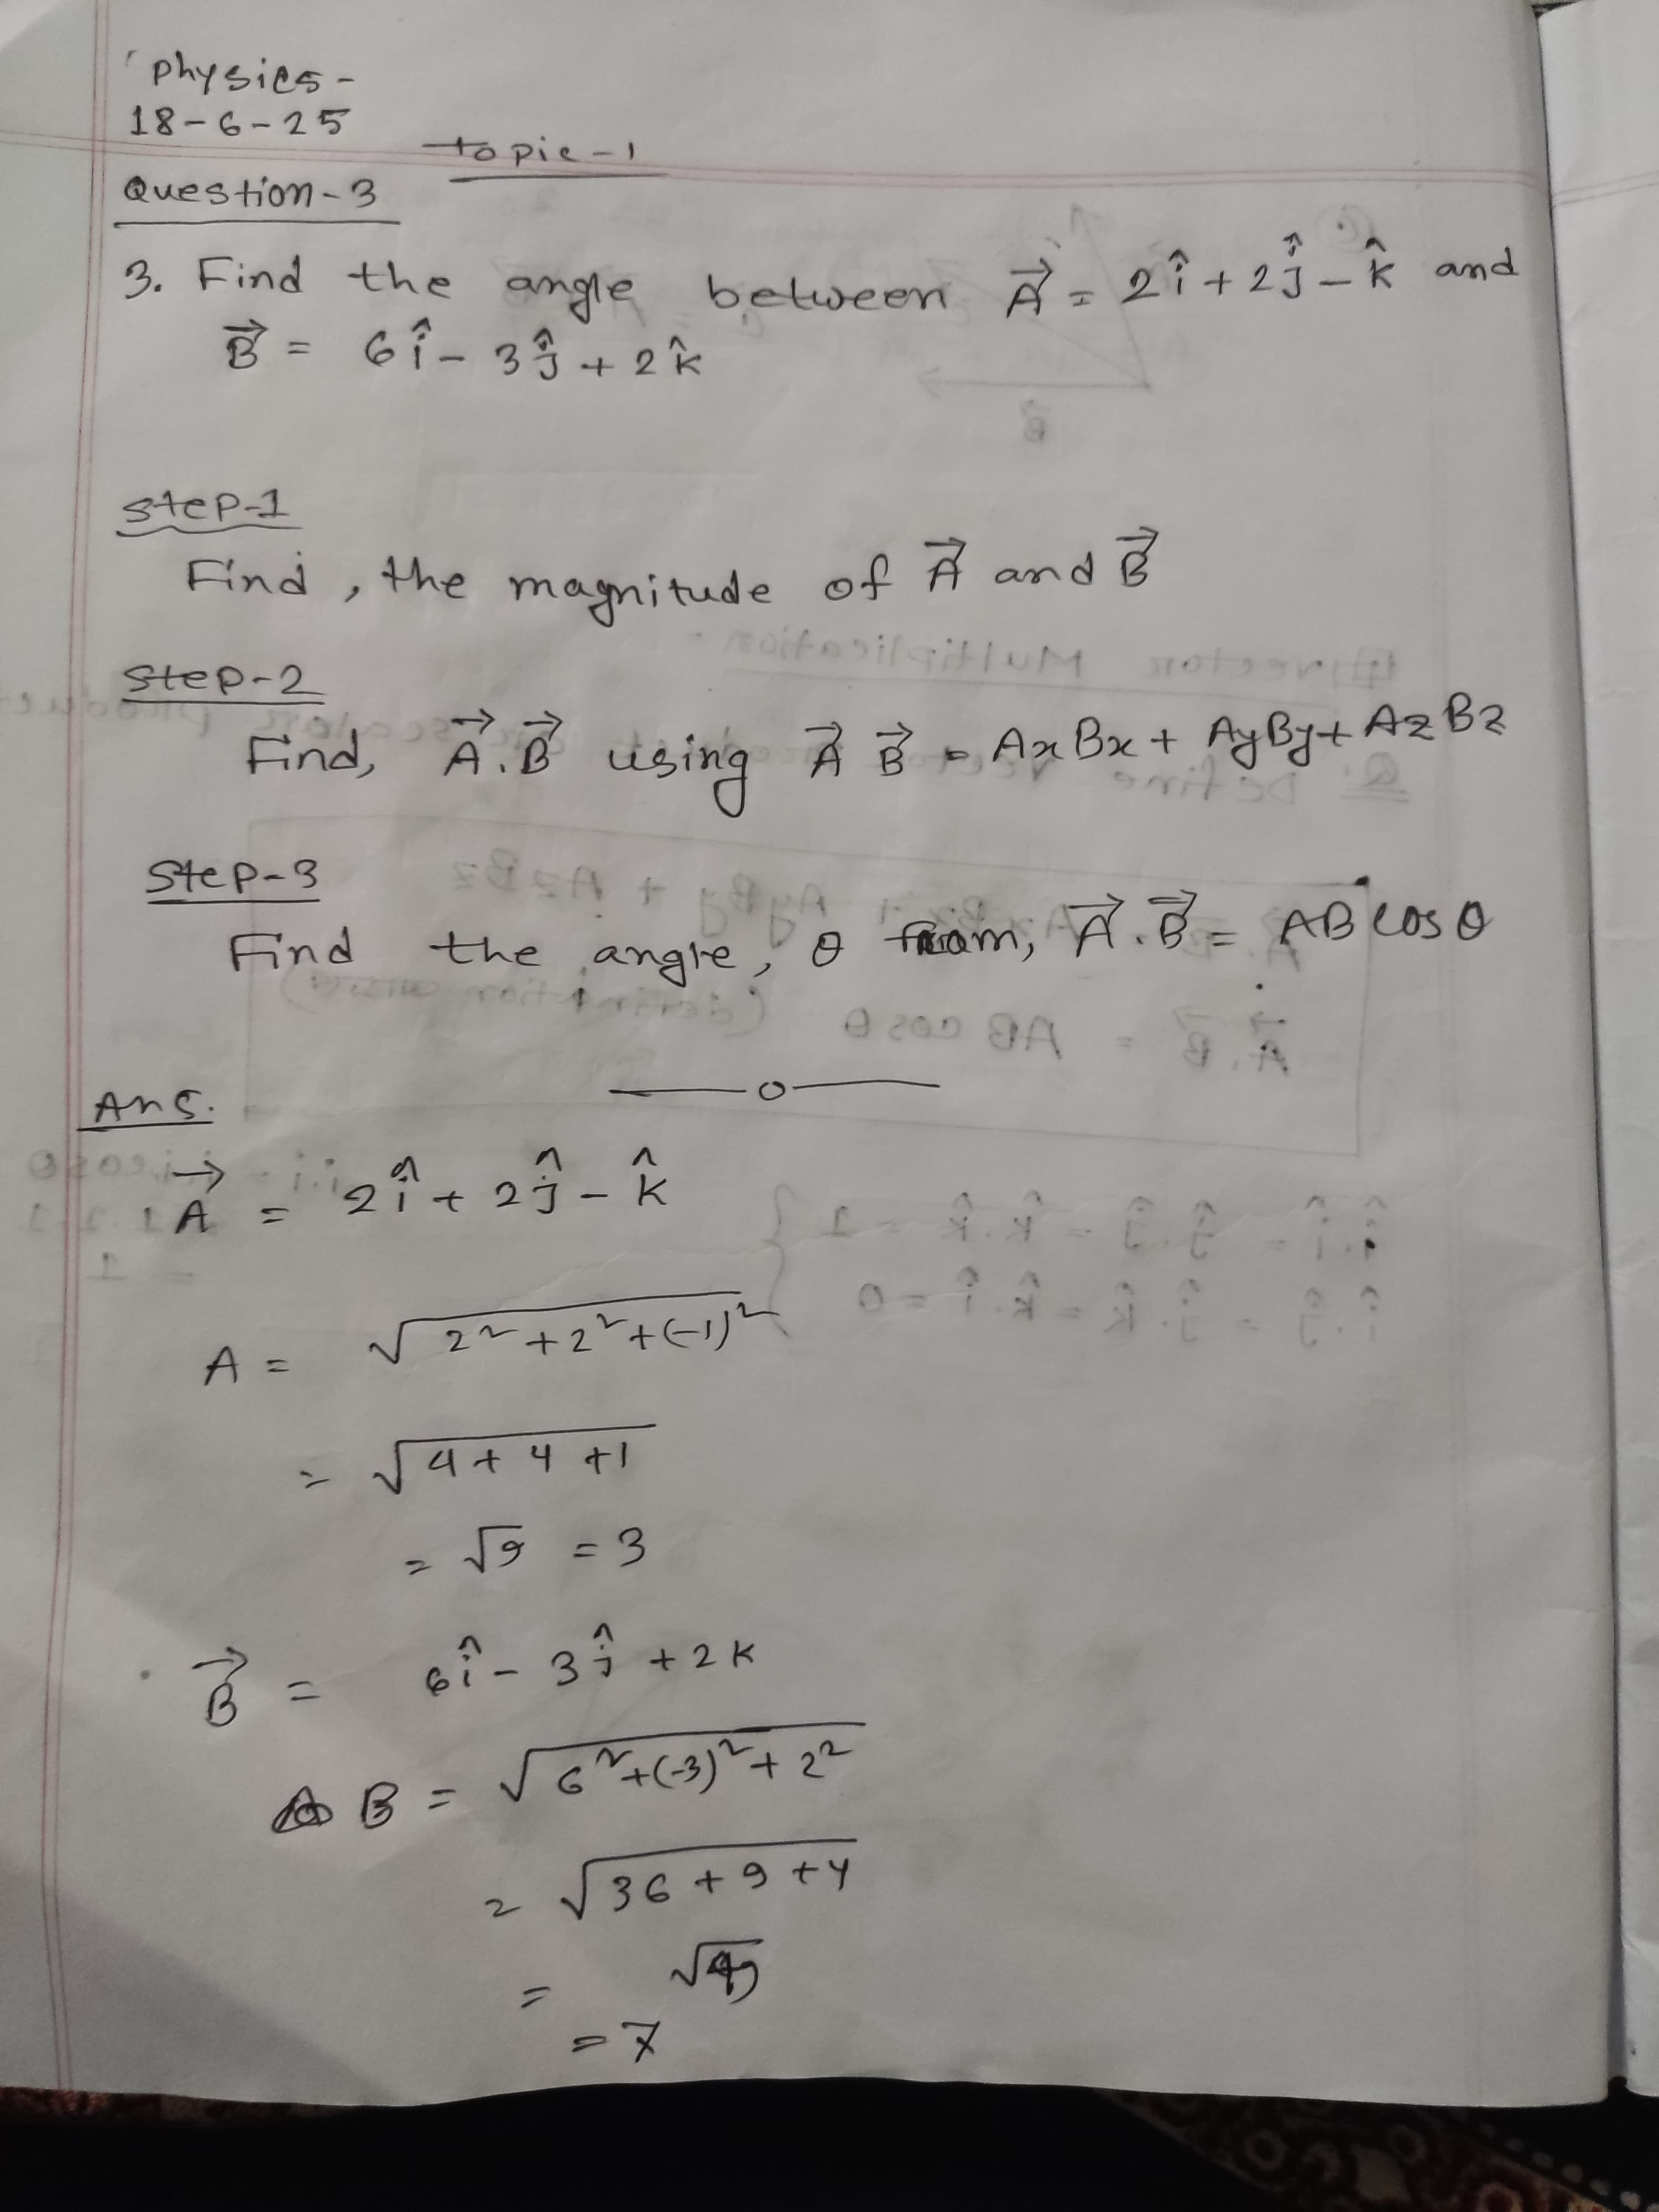 Physics -
18-6-25
Topic-1
Question-3
3. Find the angle between A⃗ = 2î + 2ĵ - k̂ and
B⃗ = 6î - 3ĵ + 2k̂
Step-1
Find, the magnitude of A⃗ and B⃗
Step-2
Find, A⃗.B⃗ using A⃗ B⃗ = AxBx + AyBy + AzBz
Step-3
Find the angle, θ from, A⃗.B⃗ = AB cos θ
Ans.
A⃗ = 2î + 2ĵ - k̂
A = √2² + 2² + (-1)²
= √4 + 4 + 1
= √9 = 3
B⃗ = 6î - 3ĵ + 2k
B = √6² + (-3)² + 2²
= √36 + 9 + 4
= √49
= 7